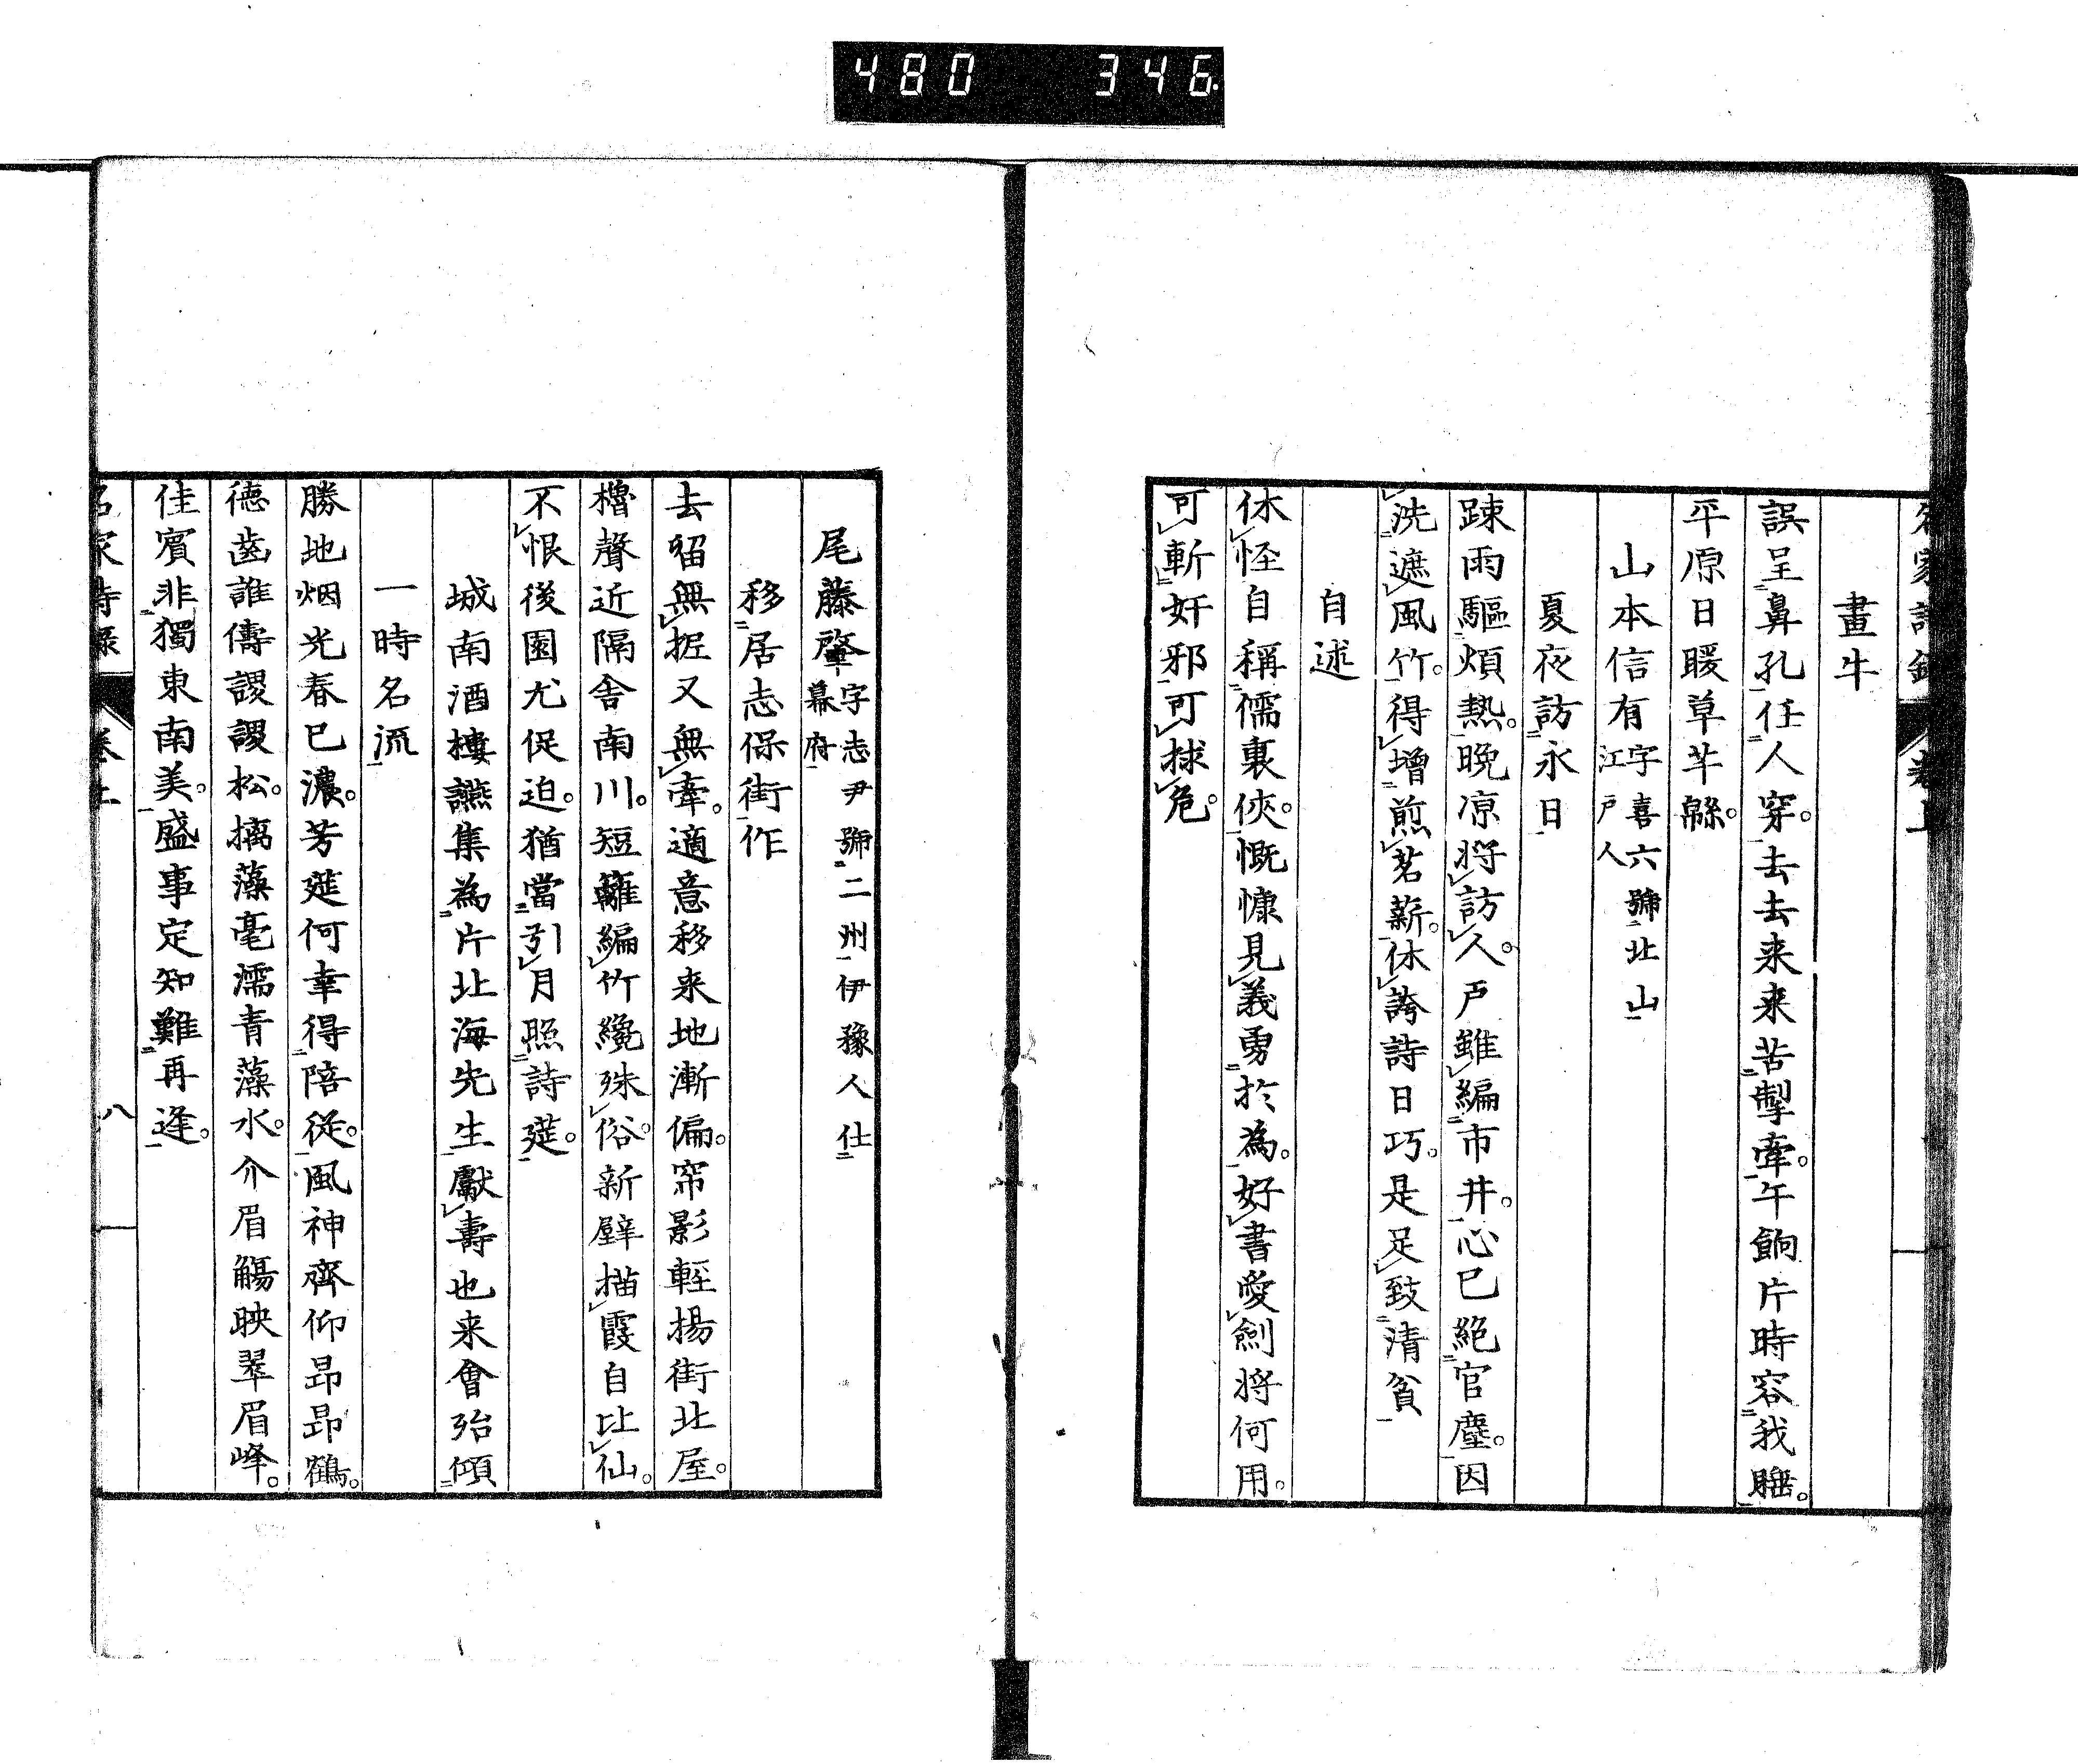 480 346.
名家詩錄 卷上
畫牛
誤呈鼻孔任人穿。去去来来苦掣牽。午餉片時容我睡。
平原日暖草芊緜。
山本信有 字喜六號北山江戸人
夏夜訪永日
踈雨驅煩熱。晩凉將訪人。戸雖編市井。心已絶官塵。因
洗遮風竹。得增煎茗薪。休誇詩日巧。是足致清貧
自述
休怪自稱儒裏俠。慨慷見義勇於為。好書愛劍將何用。
可斬奸邪可捄危。
尾藤肇 字志尹號二州伊豫人仕幕府
移居志保街作
去留無挽又無牽。適意移来地漸偏。帘影輕揚街北屋。
櫓聲近隔舎南川。短籬編竹纔殊俗。新壁描霞自比仙。
不恨後園尤促迫。猶當引月照詩筵。
城南酒樓讌集為片北海先生獻壽也来會殆傾
一時名流
勝地烟光春已濃。芳筵何幸得陪從。風神齊仰昂昂鶴。
德齒誰儔謖謖松。摛藻毫濡青藻水。介眉觴映翠眉峰。
佳賓非獨東南美。盛事定知難再逢。
名家詩錄 卷上 八